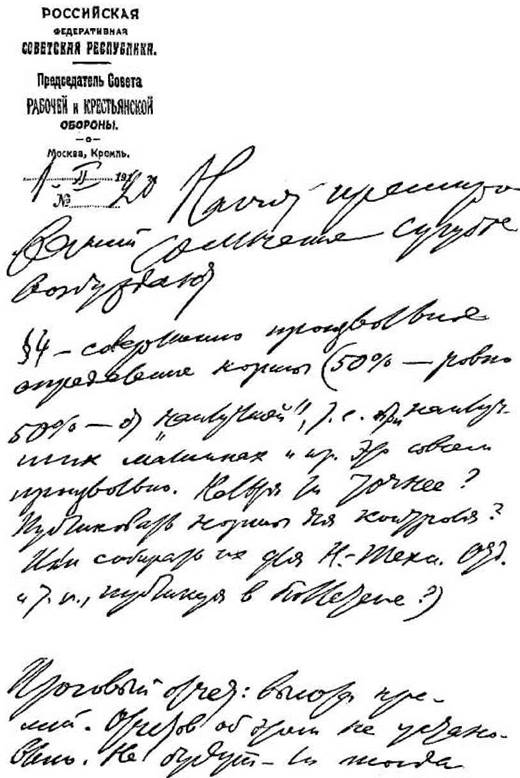 РОССИЙСКАЯ
ФЕДЕРАТИВНАЯ
СОВЕТСКАЯ РЕСПУБЛИКА.
Председатель Совета
РАБОЧЕЙ и КРЕСТЬЯНСКОЙ
ОБОРОНЫ.
Москва, Кремль.
1 II 1920
№
премиро-
ваний сомнения сугубые
возбуждают
§4 — совершенно произвольное
определение нормы (50% — ровно
50% — от "наилучшей", т. е. при наилуч-
ших машинах и пр. Это совсем
произвольно. Нельзя ли точнее?
Публиковать нормы для контроля?
Или собирать их для Н.-Техн. Отд.
и т. п., публикуя в бюллетене?)
Итоговый отчет: выдача пре-
мий. Отчетов об этом не устано-
влено. Не будут-ли тогда